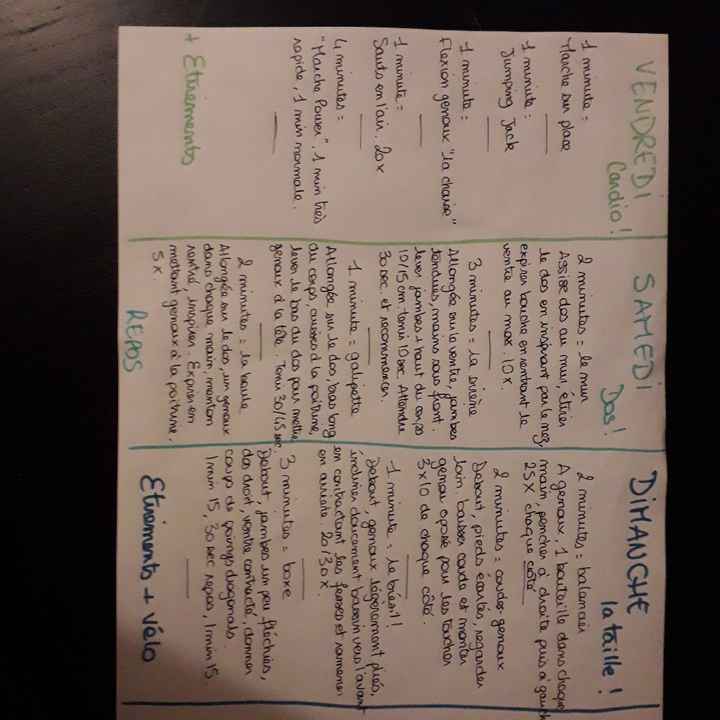 VENDREDI
Cardio !
1 minute :
Marche sur place
1 minute :
Jumping Jack
1 minute :
Flexion genoux "la chaise"
1 minute :
Sauts en l'air. 20x
4 minutes :
"Marche Power". 1 min très
rapide, 1 min normale.
+ Etirements
SAMEDI
Dos !
2 minutes = le mur
Assise dos au mur, étirer
le dos en inspirant par le nez,
expirer bouche en rentrant le
ventre au max. 10x.
3 minutes = la sirène
Allongée sur le ventre, jambes
tendues, mains sous front.
lever jambes + haut du corps
10/15 cm. tenir 10 sec. Attendre
30 sec. et recommencer.
1 minute = galipette
Allongée sur le dos, bras long
du corps, cuisses à la poitrine,
lever le bas du dos pour mettre
genoux à la tête. Tenir 30/45 sec.
2 minutes = la boule
Allongée sur le dos, un genoux
dans chaque main, menton
rentré, inspirer. Expirer en
mettant genoux à la poitrine.
5x.
REPOS
DIMANCHE
la taille !
2 minutes : balancier
A genoux, 1 bouteille dans chaque
main, pencher à droite puis à gauche
25x chaque côté
2 minutes = coudes-genoux
Debout, pieds écartés, regarder
loin. baisser coude et monter
genou opposé pour les toucher
3x10 de chaque côté.
1 minute = le brésil !
Debout, genoux légèrement pliés,
incliner doucement bassin vers l'avant
en contractant les fesses et ramener
en arrière. 20/30x.
3 minutes = boxe
Debout, jambes un peu fléchies,
dos droit, ventre contracté, donner
coups de poings diagonals.
1 min 15, 30 sec repos, 1 min 15.
Etirements + vélo